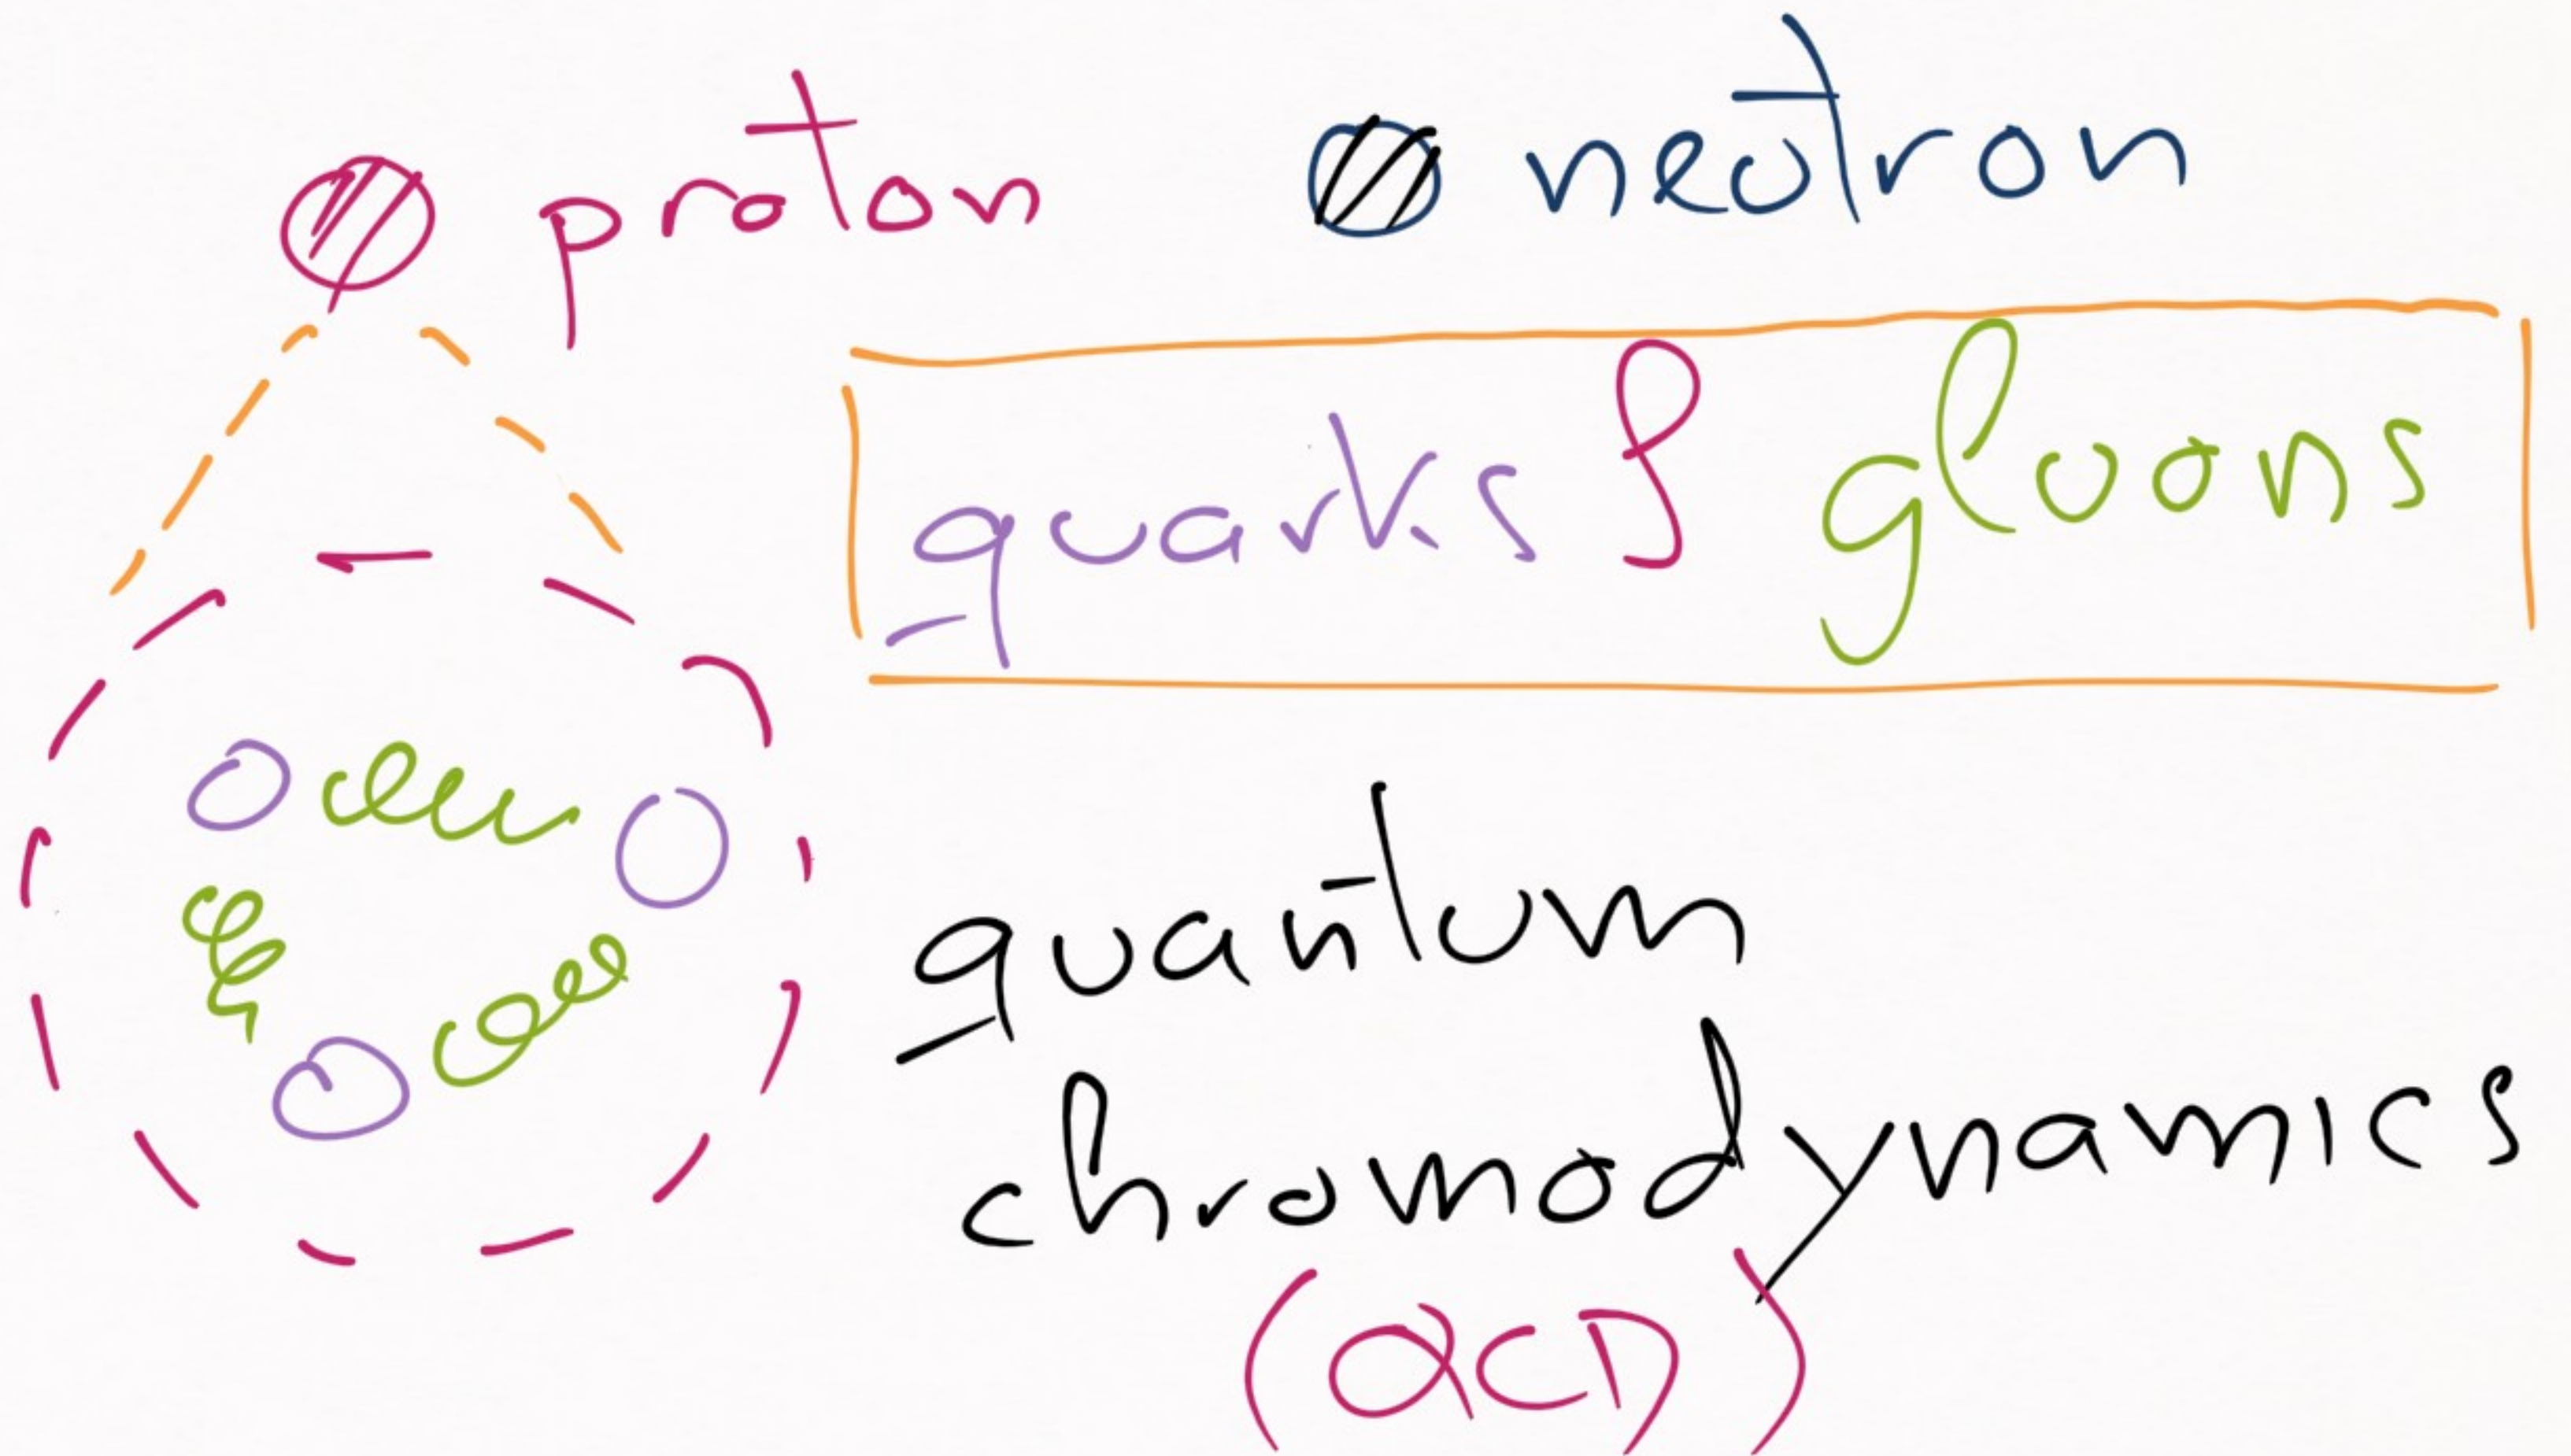 proton
neutron
quarks & gluons
quantum
chromodynamics
(QCD)